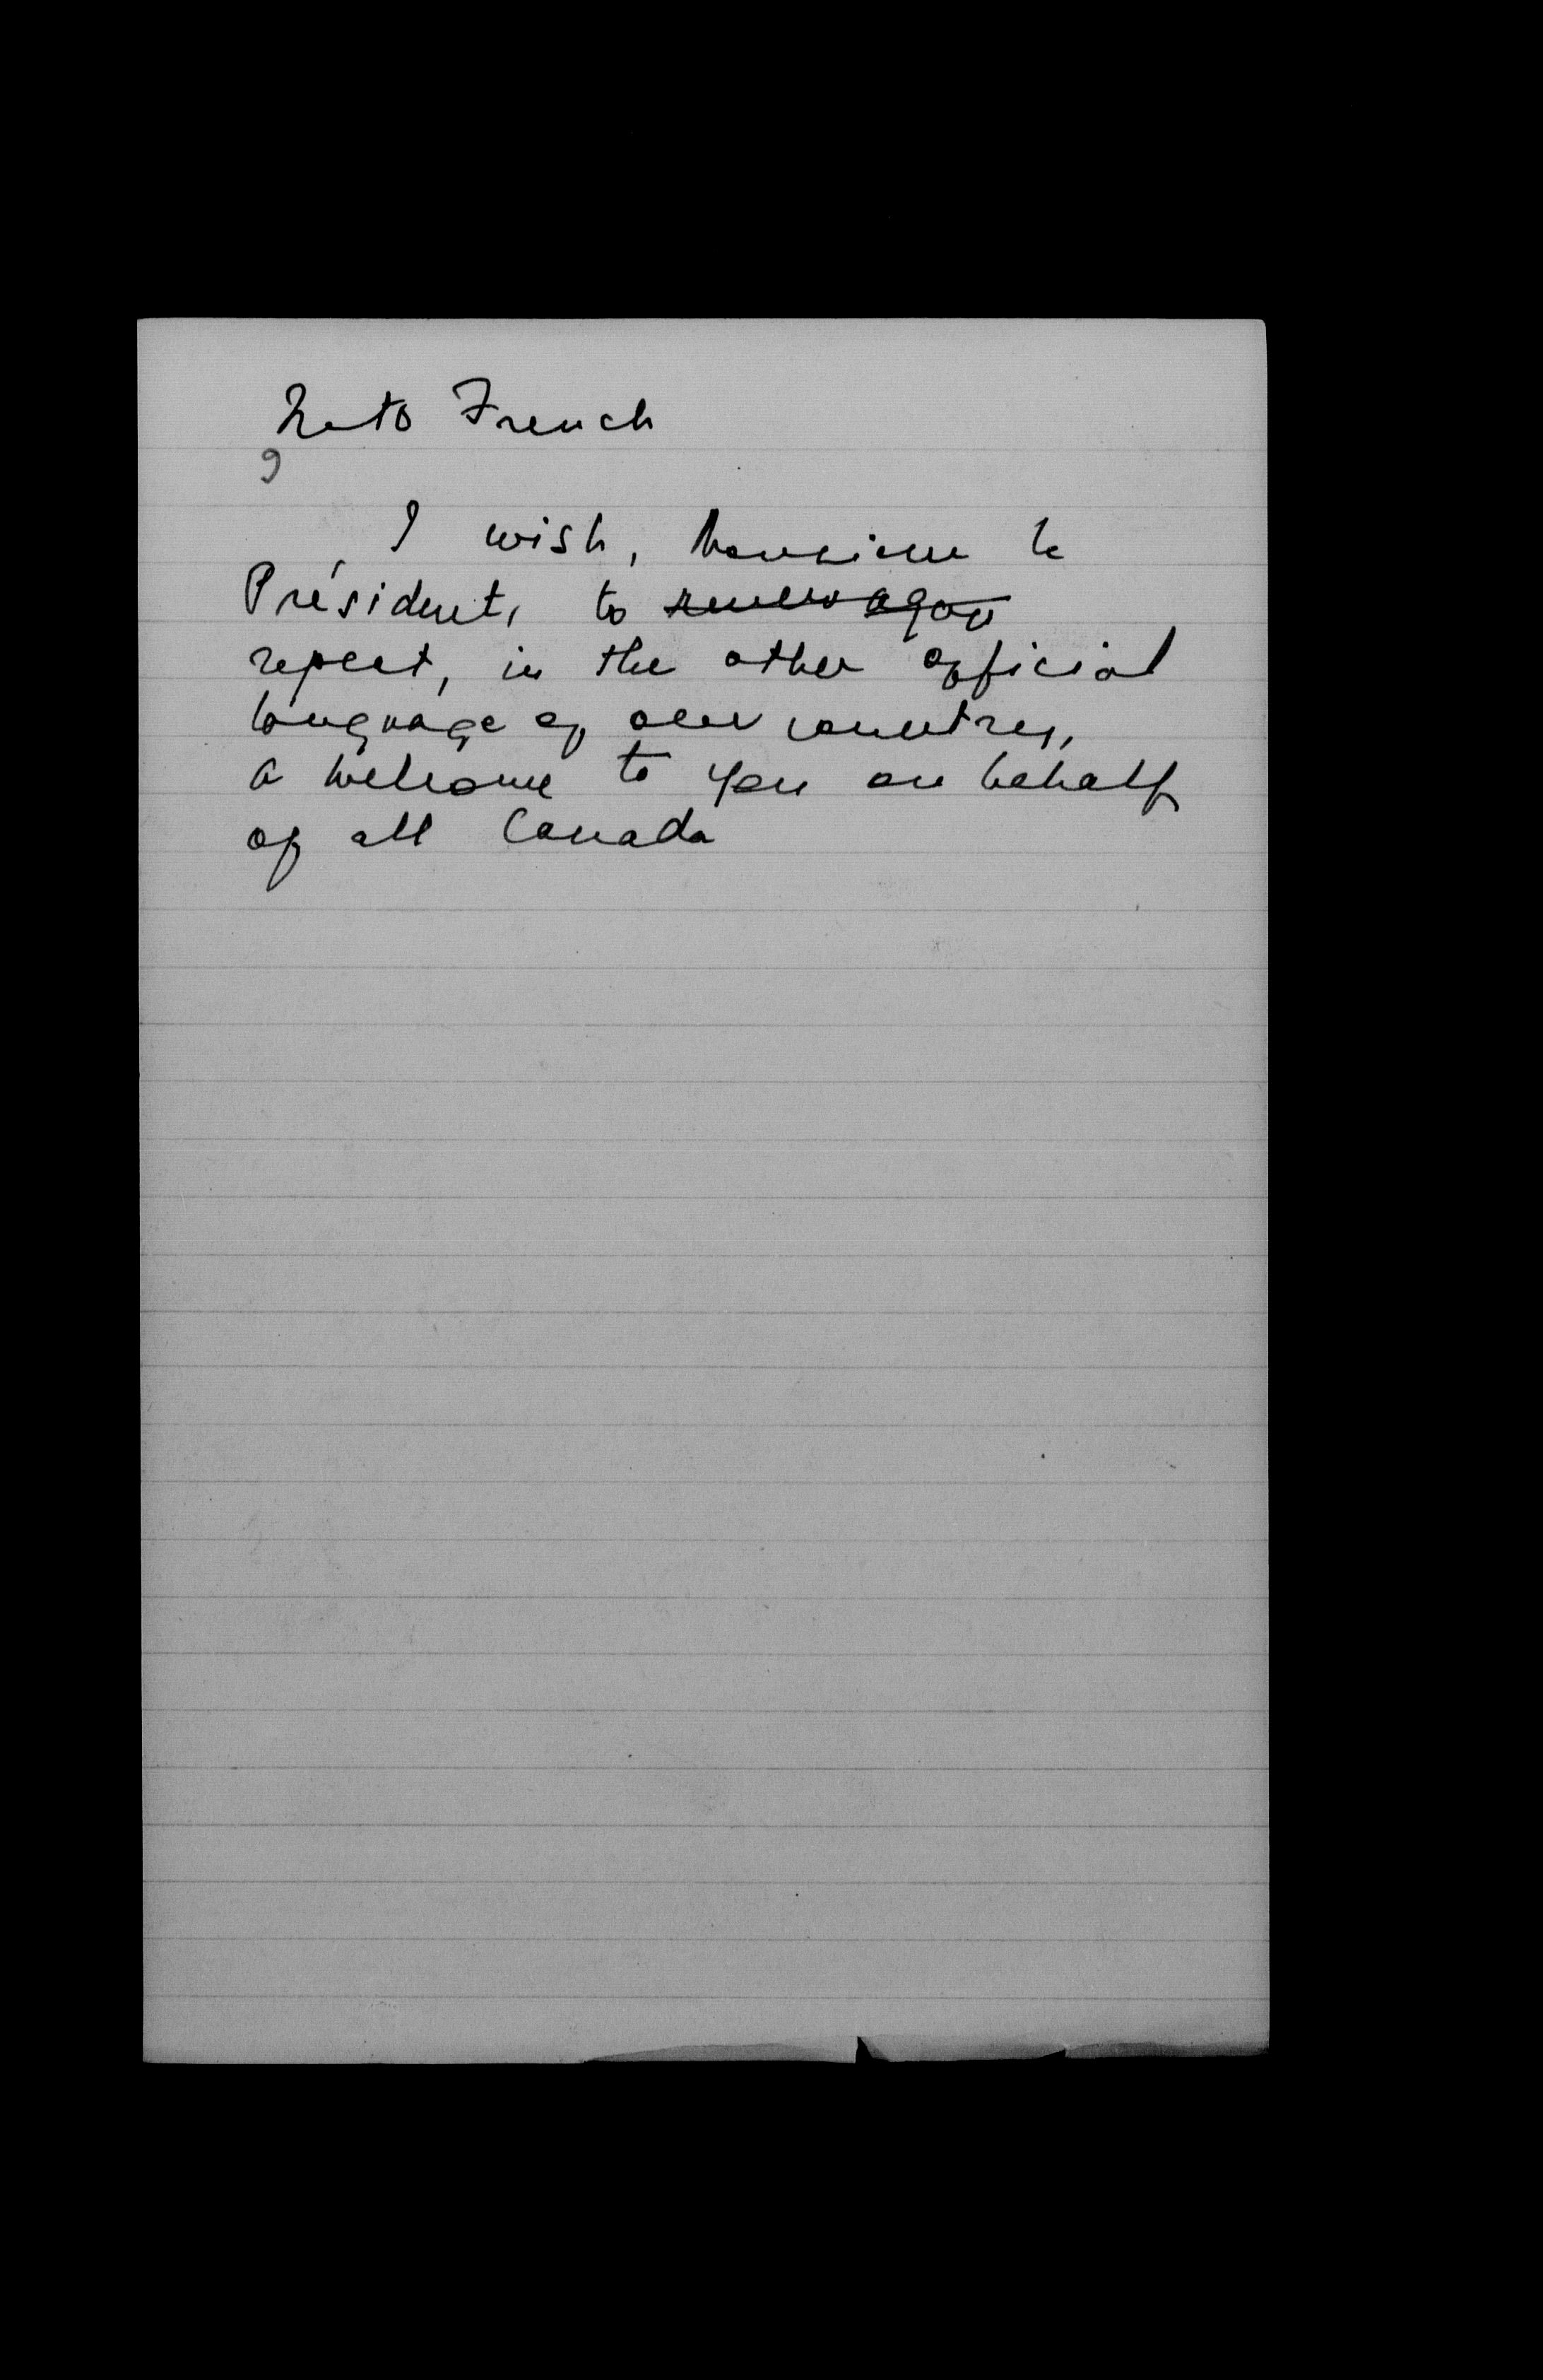 Into French
I wish, Monsieur le
Président, to renew again
repeat, in the other official
language of our country,
a welcome to you on behalf
of all Canada